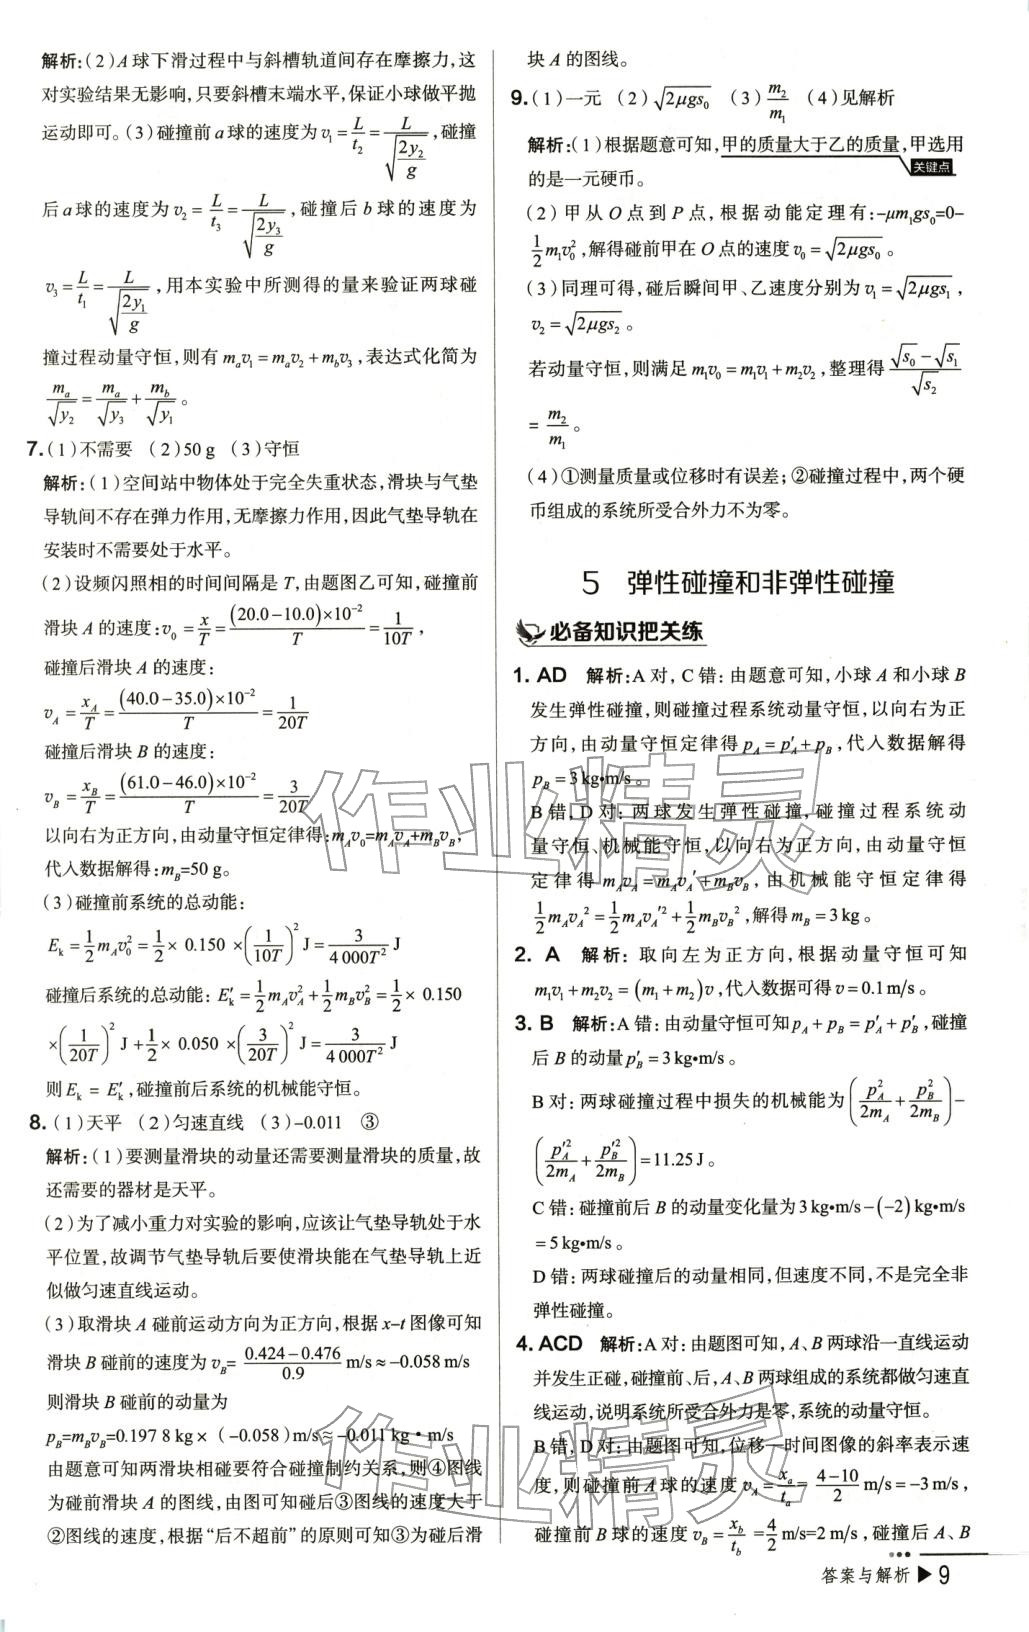 解析:(2)A球下滑过程中与斜槽轨道间存在摩擦力,这
对实验结果无影响,只要斜槽末端水平,保证小球做平抛
运动即可。(3)碰撞前a球的速度为v₁=L/t₂=L/√(2y₂/g),碰撞
后a球的速度为v₂=L/t₃=L/√(2y₃/g),碰撞后b球的速度为
v₃=L/t₁=L/√(2y₁/g),用本实验中所测得的量来验证两球碰
撞过程动量守恒,则有mₐv₁=mₐv₂+m_bv₃,表达式化简为
mₐ/√y₂=mₐ/√y₃+m_b/√y₁。
7.(1)不需要 (2)50 g (3)守恒
解析:(1)空间站中物体处于完全失重状态,滑块与气垫
导轨间不存在弹力作用,无摩擦力作用,因此气垫导轨在
安装时不需要处于水平。
(2)设频闪照相的时间间隔是T,由题图乙可知,碰撞前
滑块A的速度:v₀=x/T=(20.0-10.0)×10⁻²/T=1/10T,
碰撞后滑块A的速度:
v_A=x_A/T=(40.0-35.0)×10⁻²/T=1/20T
碰撞后滑块B的速度:
v_B=x_B/T=(61.0-46.0)×10⁻²/T=3/20T
以向右为正方向,由动量守恒定律得:m_Av₀=m_Av_A+m_Bv_B,
代入数据解得:m_B=50 g。
(3)碰撞前系统的总动能:
E_k=1/2 m_Av₀²=1/2×0.150×(1/10T)² J=3/4 000T² J
碰撞后系统的总动能:E′_k=1/2 m_Av_A²+1/2 m_Bv_B²=1/2×0.150
×(1/20T)² J+1/2×0.050×(3/20T)² J=3/4 000T² J
则E_k=E′_k,碰撞前后系统的机械能守恒。
8.(1)天平 (2)匀速直线 (3)-0.011 ③
解析:(1)要测量滑块的动量还需要测量滑块的质量,故
还需要的器材是天平。
(2)为了减小重力对实验的影响,应该让气垫导轨处于水
平位置,故调节气垫导轨后要使滑块能在气垫导轨上近
似做匀速直线运动。
(3)取滑块A碰前运动方向为正方向,根据x-t图像可知
滑块B碰前的速度为v_B=(0.424-0.476)/0.9 m/s≈-0.058 m/s
则滑块B碰前的动量为
p_B=m_Bv_B=0.197 8 kg×(-0.058)m/s≈-0.011 kg·m/s
由题意可知两滑块相碰要符合碰撞制约关系,则④图线
为碰前滑块A的图线,由图可知碰后③图线的速度大于
②图线的速度,根据“后不超前”的原则可知③为碰后滑
块A的图线。
9.(1)一元 (2)√(2μgs₀) (3)m₂/m₁ (4)见解析
解析:(1)根据题意可知,甲的质量大于乙的质量,甲选用
关键点
的是一元硬币。
(2)甲从O点到P点,根据动能定理有:-μm₁gs₀=0-
1/2 m₁v₀²,解得碰前甲在O点的速度v₀=√(2μgs₀)。
(3)同理可得,碰后瞬间甲、乙速度分别为v₁=√(2μgs₁),
v₂=√(2μgs₂)。
若动量守恒,则满足m₁v₀=m₁v₁+m₂v₂,整理得(√s₀-√s₁)/√s₂
=m₂/m₁。
(4)①测量质量或位移时有误差;②碰撞过程中,两个硬
币组成的系统所受合外力不为零。
5 弹性碰撞和非弹性碰撞
必备知识把关练
1. AD 解析:A对,C错:由题意可知,小球A和小球B
发生弹性碰撞,则碰撞过程系统动量守恒,以向右为正
方向,由动量守恒定律得p_A=p′_A+p_B,代入数据解得
p_B=3 kg•m/s。
B错,D对:两球发生弹性碰撞,碰撞过程系统动
量守恒、机械能守恒,以向右为正方向,由动量守恒
定律得m_Av_A=m_Av_A′+m_Bv_B,由机械能守恒定律得
1/2 m_Av_A²=1/2 m_Av_A′²+1/2 m_Bv_B²,解得m_B=3 kg。
2. A 解析:取向左为正方向,根据动量守恒可知
m₁v₁+m₂v₂=(m₁+m₂)v,代入数据可得v=0.1 m/s。
3. B 解析:A错:由动量守恒可知p_A+p_B=p′_A+p′_B,碰撞
后B的动量p′_B=3 kg•m/s。
B对:两球碰撞过程中损失的机械能为(p_A²/2m_A+p_B²/2m_B)-
(p′_A²/2m_A+p′_B²/2m_B)=11.25 J。
C错:碰撞前后B的动量变化量为3 kg•m/s-(-2)kg•m/s
=5 kg•m/s。
D错:两球碰撞后的动量相同,但速度不同,不是完全非
弹性碰撞。
4. ACD 解析:A对:由题图可知,A、B两球沿一直线运动
并发生正碰,碰撞前、后,A、B两球组成的系统都做匀速直
线运动,说明系统所受合外力是零,系统的动量守恒。
B错,D对:由题图可知,位移—时间图像的斜率表示速
度,则碰撞前A球的速度v_A=xₐ/tₐ=(4-10)/2 m/s=-3 m/s,
碰撞前B球的速度v_B=x_b/t_b=4/2 m/s=2 m/s,碰撞后A、B
答案与解析 ▶ 9
作业精灵
作业精灵